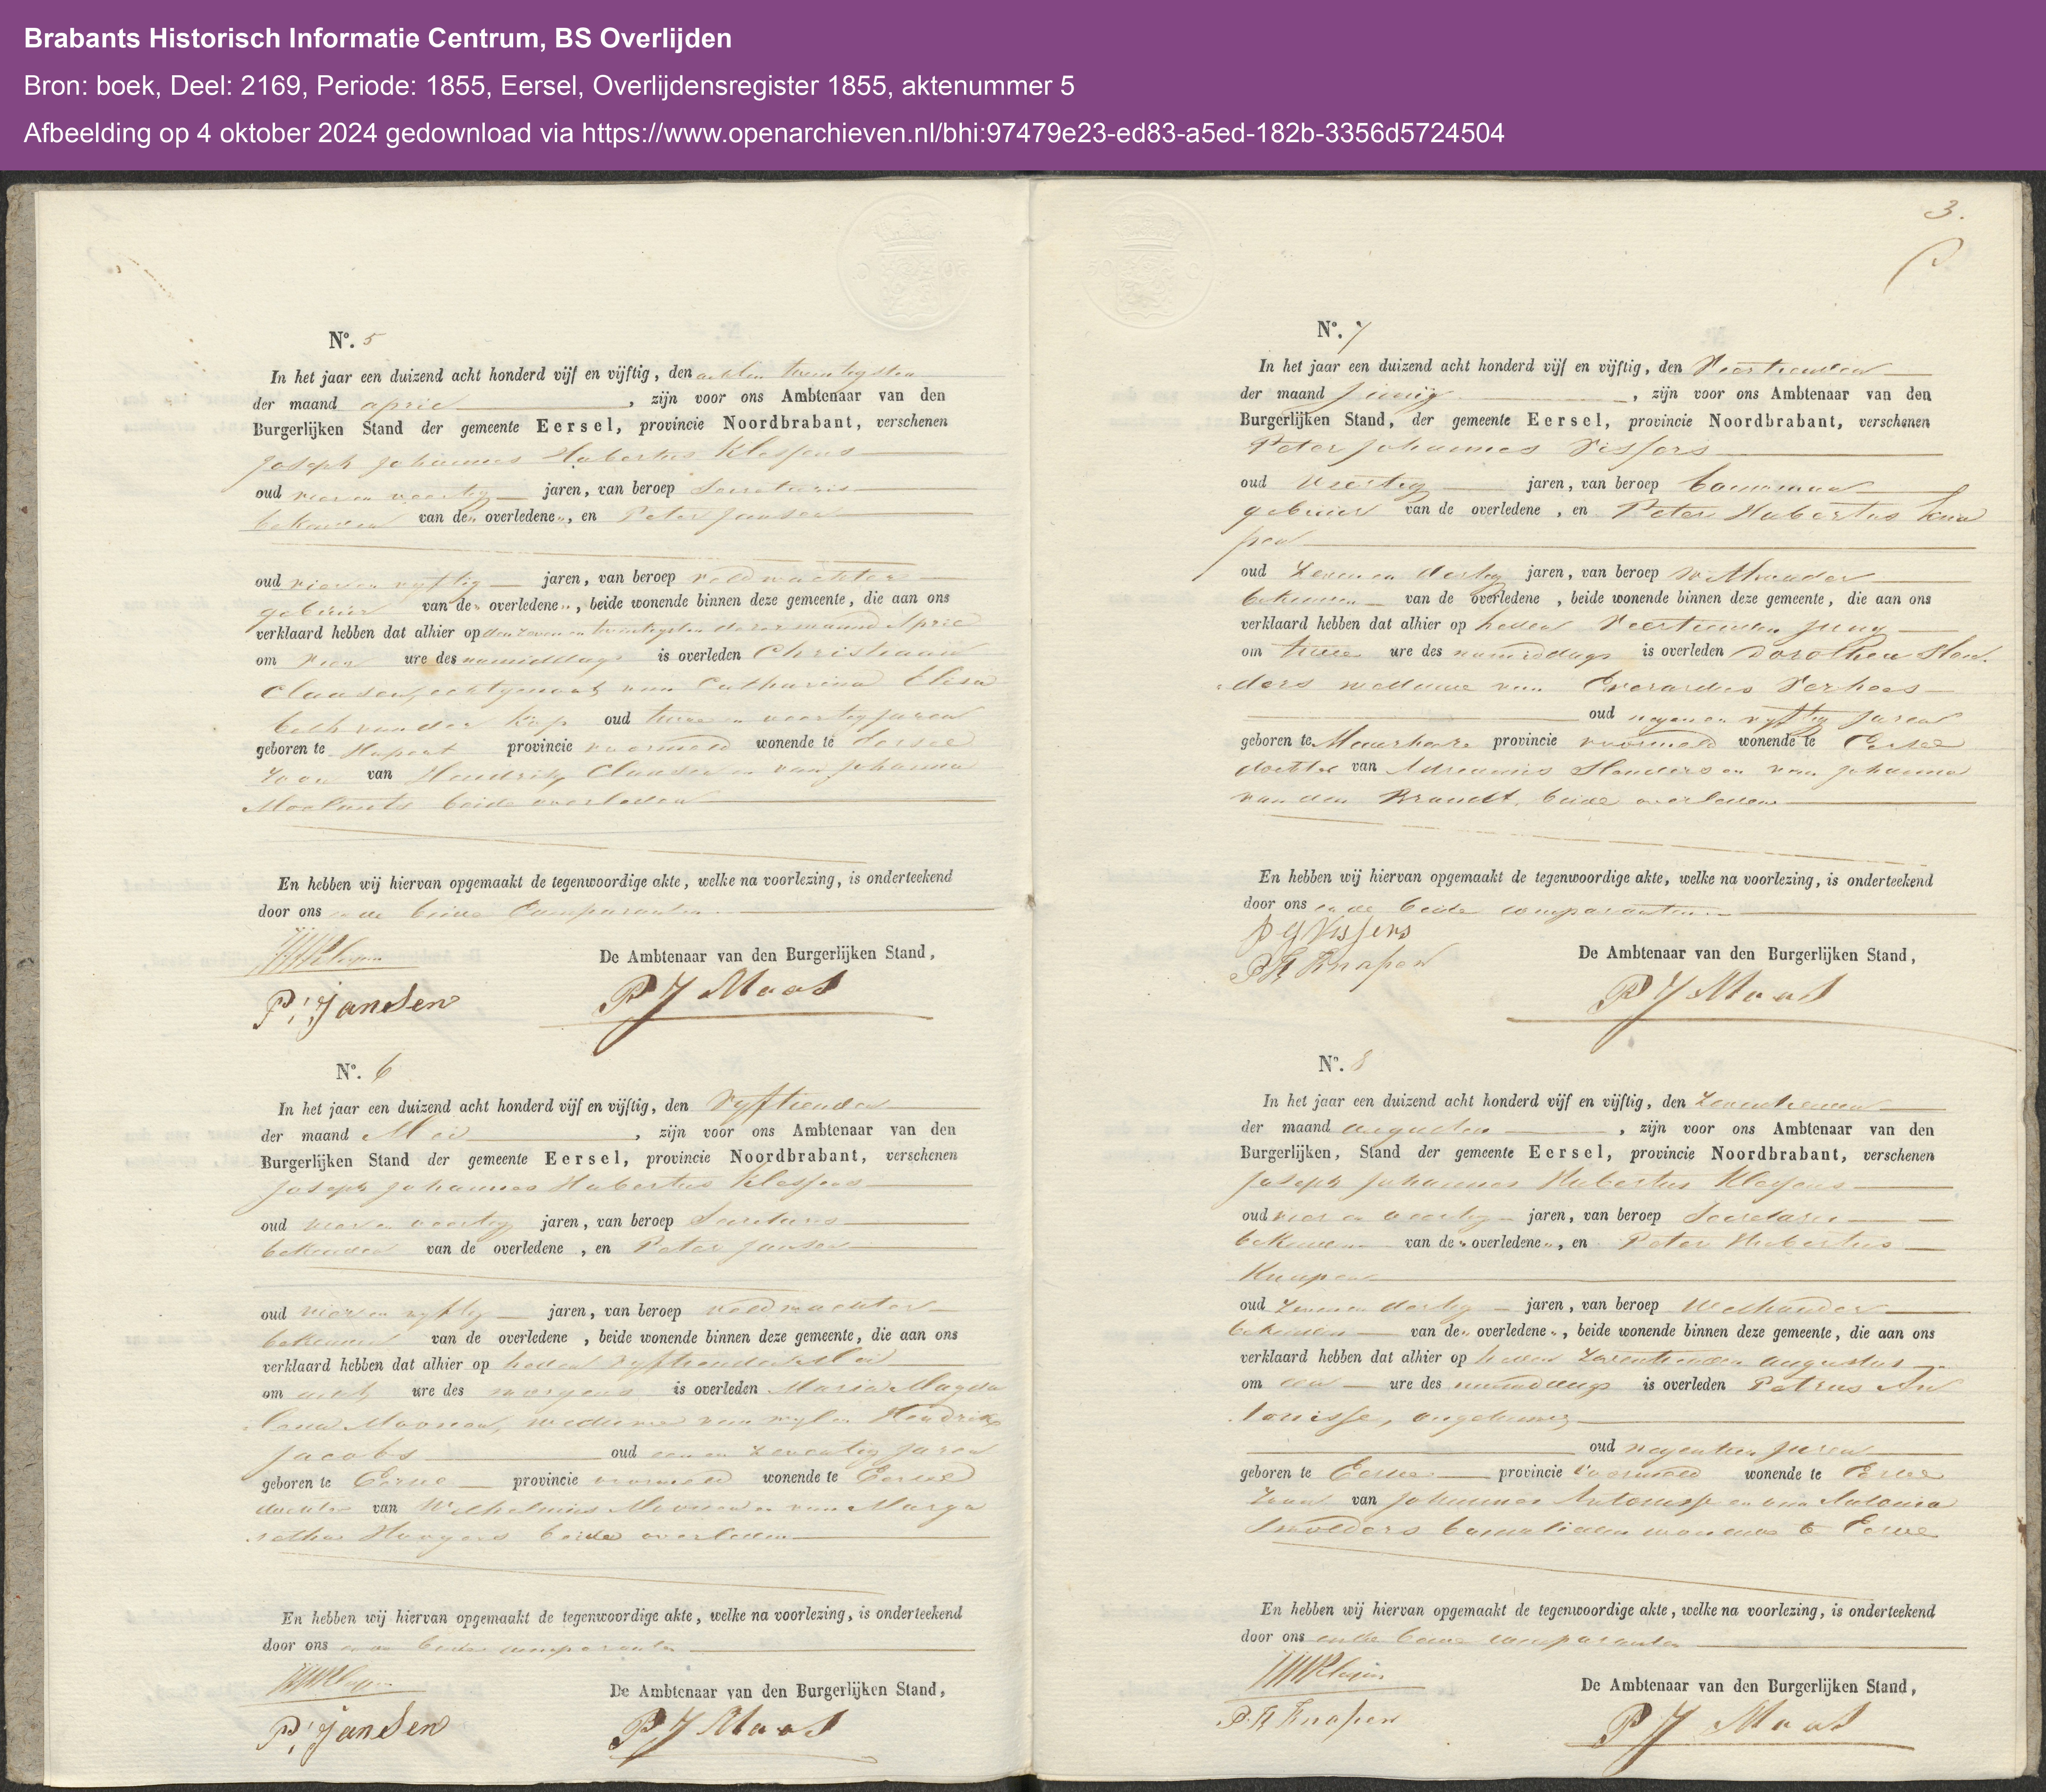 Brabants Historisch Informatie Centrum, BS Overlijden
Bron: boek, Deel: 2169, Periode: 1855, Eersel, Overlijdensregister 1855, aktenummer 5
Afbeelding op 4 oktober 2024 gedownload via https://www.openarchieven.nl/bhi:97479e23-ed83-a5ed-182b-3356d5724504
No. 5
In het jaar een duizend acht honderd vijf en vijftig, den acht en twintigsten
der maand april, zijn voor ons Ambtenaar van den
Burgerlijken Stand der gemeente Eersel, provincie Noordbrabant, verschenen
Joseph Johannes Hubertus Klessens
oud vier en veertig jaren, van beroep Secretaris
bekenden van de" overledene", en Peter Jansen
oud vier en vyftig jaren, van beroep veldwachter
gebuur van de" overledene", beide wonende binnen deze gemeente, die aan ons
verklaard hebben dat alhier op den zeven en twintigsten dezer maand April
om vier ure des namiddags is overleden Christiaan
Claasen, echtgenoot van Catharina Elisa
beth van der Kop oud twee en veertig jaren
geboren te Hapert provincie voormeld wonende te Eersel
zoon van Hendrik Claasen en van Johanna
Moelants beide overleden
En hebben wij hiervan opgemaakt de tegenwoordige akte, welke na voorlezing, is onderteekend
door ons en de beide Comparanten
De Ambtenaar van den Burgerlijken Stand,
P. Jansen
P J Maas
No. 6
In het jaar een duizend acht honderd vijf en vijftig, den Vyftienden
der maand Mei, zijn voor ons Ambtenaar van den
Burgerlijken Stand der gemeente Eersel, provincie Noordbrabant, verschenen
Joseph Johannes Hubertus Klessens
oud vier en veertig jaren, van beroep Secretaris
bekenden van de overledene, en Peter Jansen
oud vier en vyftig jaren, van beroep veldwachter
bekenden van de overledene, beide wonende binnen deze gemeente, die aan ons
verklaard hebben dat alhier op heden vyftienden Mei
om acht ure des morgens is overleden Maria Magda
lena Moonen, weduwe van wylen Hendrik
Jacobs oud een en zeventig jaren
geboren te Eersel provincie voormeld wonende te Eersel
dochter van Wilhelmus Moonen en van Marga
retha Hoogers beide overleden
En hebben wij hiervan opgemaakt de tegenwoordige akte, welke na voorlezing, is onderteekend
door ons en de beide comparanten
De Ambtenaar van den Burgerlijken Stand,
P. Jansen
P J Maas
3.
No. 7
In het jaar een duizend acht honderd vijf en vijftig, den Veertienden
der maand Junij, zijn voor ons Ambtenaar van den
Burgerlijken Stand, der gemeente Eersel, provincie Noordbrabant, verschenen
Peter Johannes Vissers
oud veertig jaren, van beroep bouwman
gebuur van de overledene, en Peter Hubertus Kna
pen
oud zeven en dertig jaren, van beroep Wethouder
bekenden van de overledene, beide wonende binnen deze gemeente, die aan ons
verklaard hebben dat alhier op heden Veertienden Juny
om twee ure des namiddags is overleden Dorothea Slen
ders weduwe van Everardus Verhoes
oud negen en vyftig jaren
geboren te provincie voormeld wonende te Eersel
dochter van Adreanus Slenders en van Johanna
van den Brandt, beide overleden
En hebben wij hiervan opgemaakt de tegenwoordige akte, welke na voorlezing, is onderteekend
door ons en de beide comparanten
P J Vissers
P H Knapen
De Ambtenaar van den Burgerlijken Stand,
P J Maas
No. 8
In het jaar een duizend acht honderd vijf en vijftig, den Zeventienden
der maand augustus, zijn voor ons Ambtenaar van den
Burgerlijken, Stand der gemeente Eersel, provincie Noordbrabant, verschenen
Joseph Johannes Hubertus
oud vier en veertig jaren, van beroep Secretaris
bekenden van de" overledene", en Peter Hubertus
Knapen
oud zeven en dertig jaren, van beroep Wethouder
bekenden van de" overledene", beide wonende binnen deze gemeente, die aan ons
verklaard hebben dat alhier op heden zeventienden augustus
om een ure des namiddags is overleden Petrus An
tonisse, ongehuwd
oud negentien jaren
geboren te Eersel provincie voormeld wonende te Eersel
zoon van Johannes Antonisse en van Antonia
Smolders bouwlieden wonende te Eersel
En hebben wij hiervan opgemaakt de tegenwoordige akte, welke na voorlezing, is onderteekend
door ons en de beide comparanten
De Ambtenaar van den Burgerlijken Stand,
P. H Knapen
P J Maas